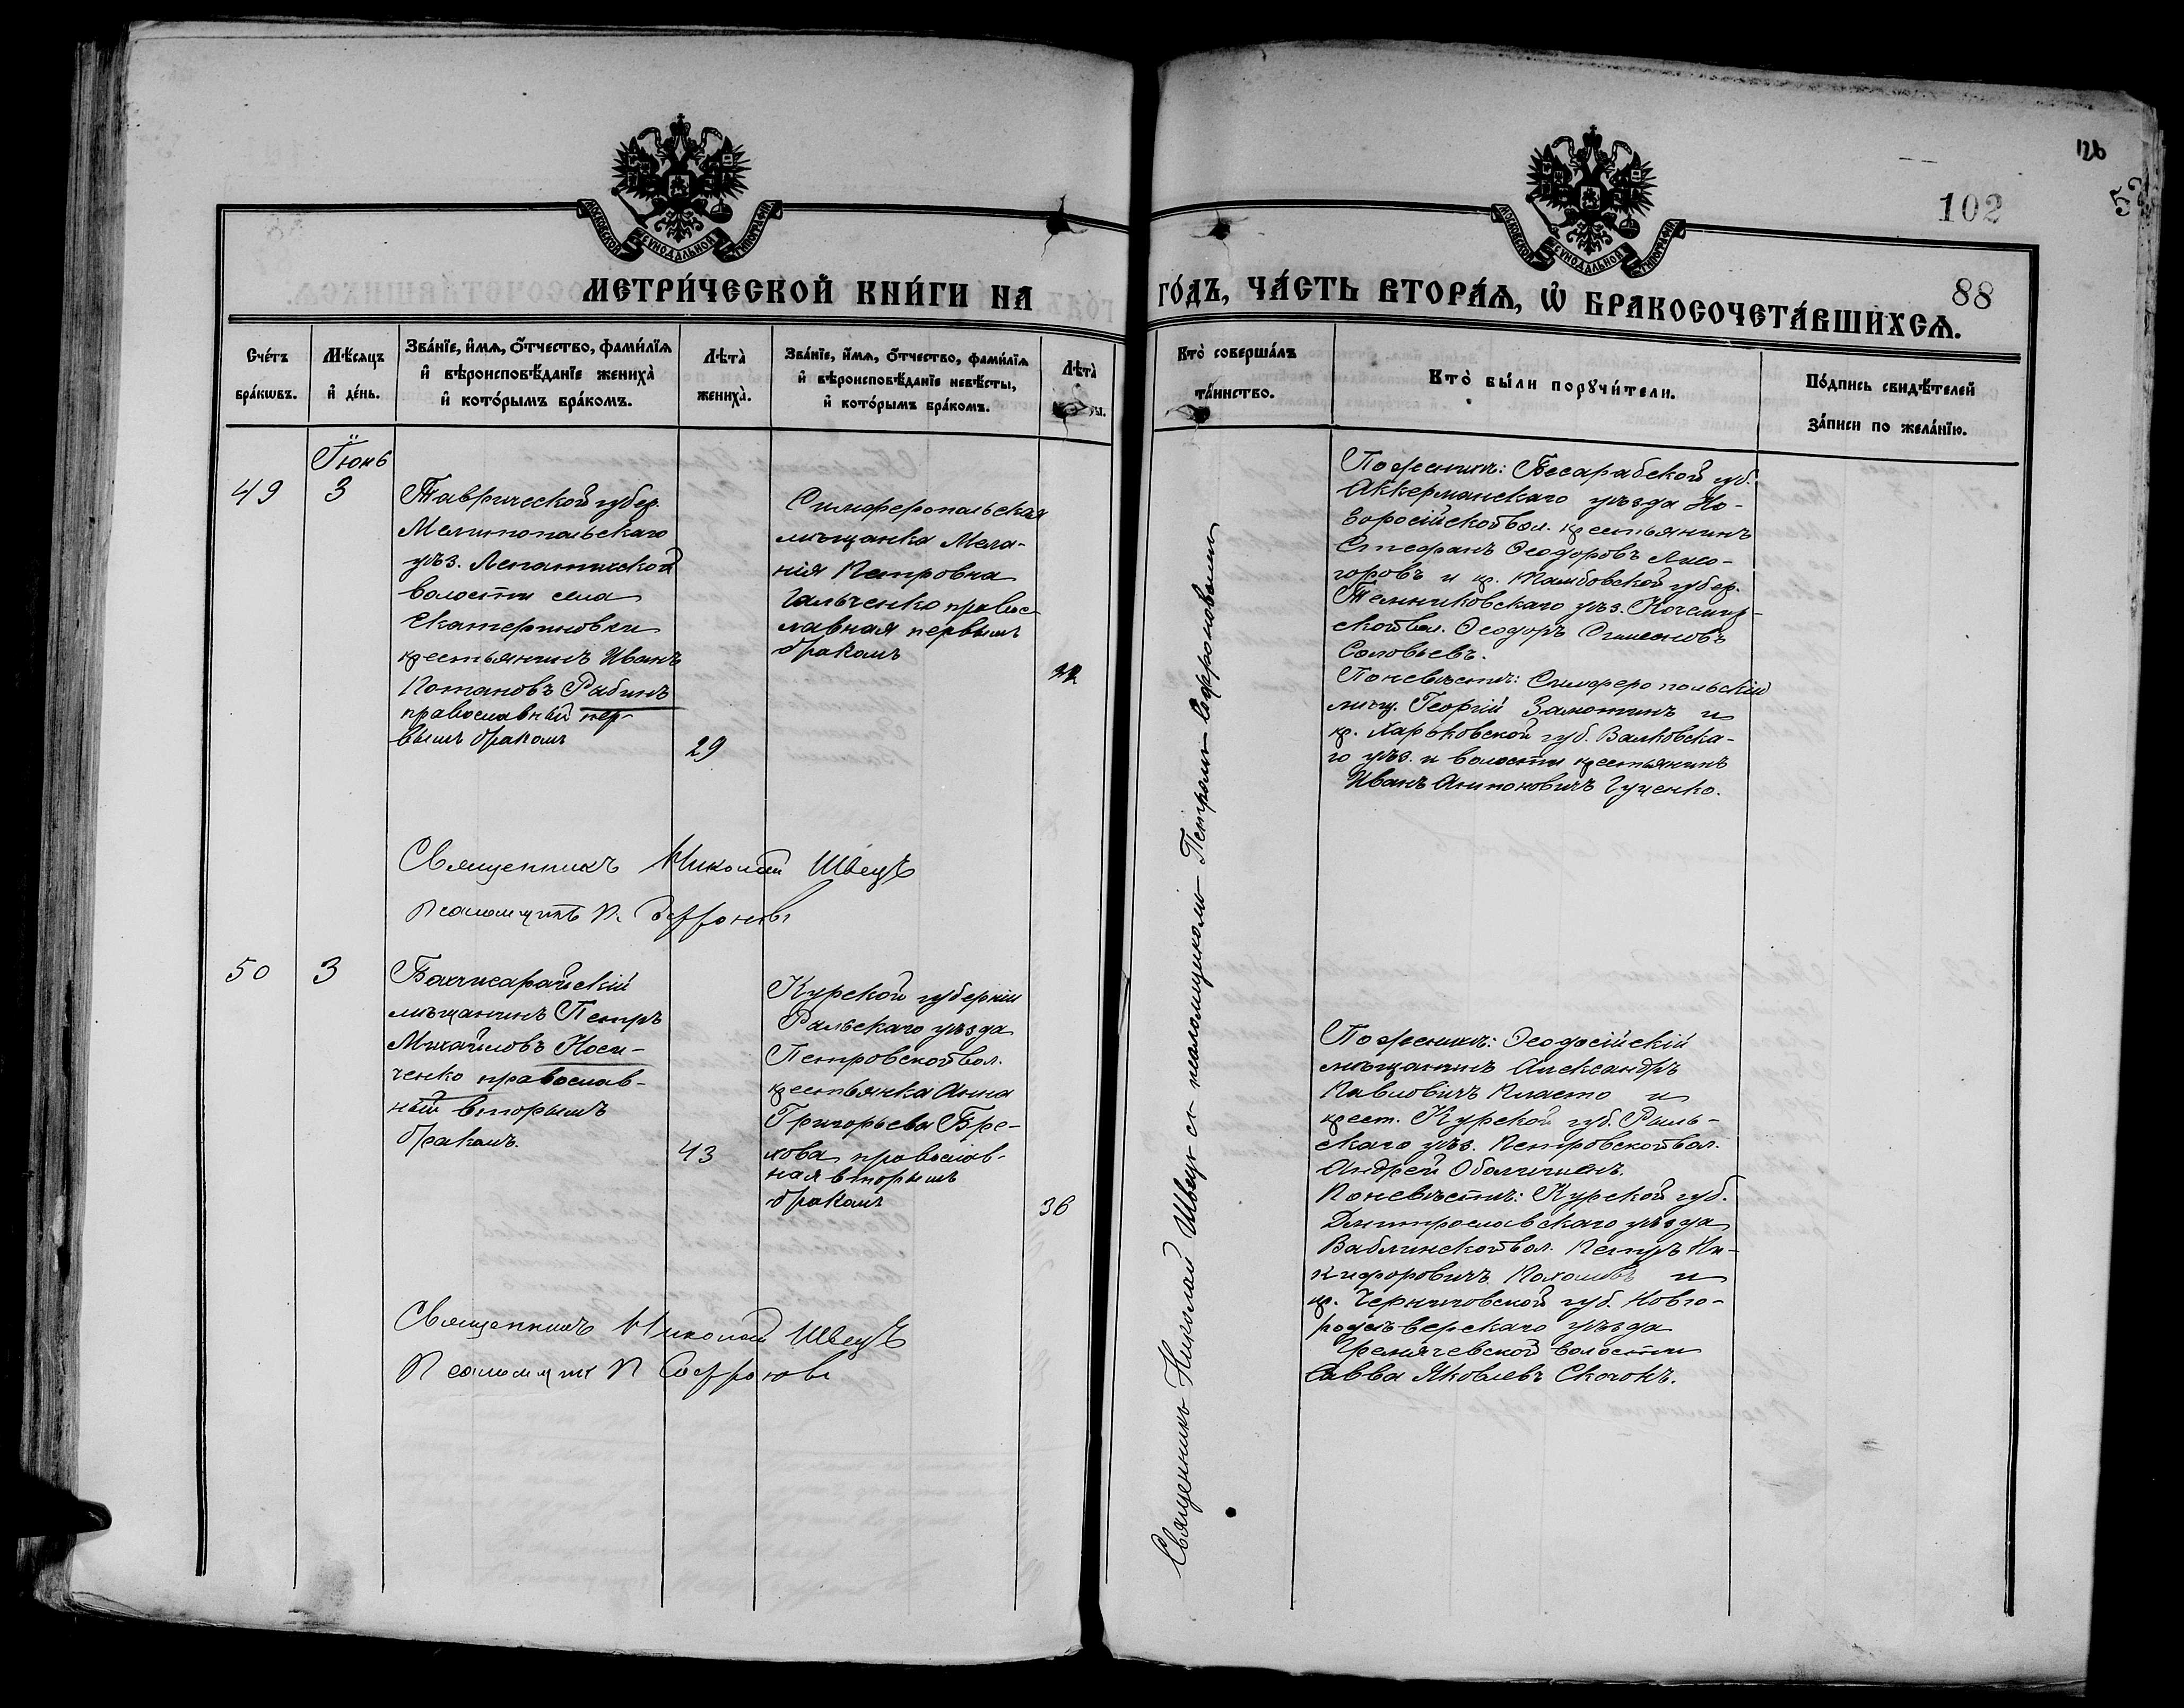 126
102
52
МОСКОВСКОЙ СѴНОДАЛЬНОЙ ТИПОГРАФІИ
МОСКОВСКОЙ СѴНОДАЛЬНОЙ ТИПОГРАФІИ
МЕТРИ́ЧЕСКОЙ КНИ́ГИ НА
ГО́ДЪ, ЧА́СТЬ ВТОРА́Ѧ, Ѽ БРАКОСОЧЕТА́ВШИХСѦ.
88
Сче́тъ
бра́кѡвъ.
Мѣ́сѧцъ
и҆ де́нь.
Зва́нїе, и҆́мѧ, о҆́тчество, фами́лїѧ
и҆ вѣроисповѣ́данїе жениха̀
и҆ кото́рымъ бра́комъ.
Лѣта̀
жениха̀.
Зва́нїе, и҆́мѧ, о҆́тчество, фами́лїѧ
и҆ вѣроисповѣ́данїе невѣ́сты,
и҆ кото́рымъ бра́комъ.
Лѣта̀
ты.
Кто̀ соверша́лъ
та́инство.
Кто̀ бы́ли порꙋчи́тели.
По́дпись свидѣ́телей
за́писи по жела́нїю.
Іюнь
49
3
Таврической губер.
Мелитопольскаго
уѣз. Лепатихской
волости села
Екатериновки
крестьянинъ Иванъ
Потаповъ Рабинъ
православный пер-
вымъ бракомъ
29
Симферопольская
мѣщанка Мела-
нія Петровна
Гальченко правос-
лавная первымъ
бракомъ
22
Священникъ Николай Швецъ съ псаломщикомъ Петромъ Софроновымъ
По женихѣ: Бесарабской губ.
Аккерманскаго уѣзда Но-
воросійской вол. крестьянинъ
Стефанъ Ѳеодоровъ Лисо-
горовъ и кр. Тамбовской губер.
Темниковскаго уѣз. Кочемир-
ской вол. Ѳеодоръ Симеоновъ
Соловьевъ.
По невѣстѣ: Симферопольскій
мѣщ. Георгій Замотинъ и
кр. Харьковской губ. Валковска-
го уѣз. и волости крестьянинъ
Иванъ Антоновичъ Гученко.
Священникъ Николай Швецъ
Псаломщикъ П. Софроновъ
50
3
Бахчисарайскій
мѣщанинъ Петръ
Михайловъ Носи-
ченко православ-
ный вторымъ
бракомъ.
43
Курской губерніи
Рыльскаго уѣзда
Петровской вол.
крестьянка Анна
Григорьева Бре-
хова православ-
ная вторымъ
бракомъ
36
По женихѣ: Ѳеодосійскій
мѣщанинъ Александръ
Павловичъ Пласто и
крест. Курской губ. Рыль-
скаго уѣз. Петровской вол.
Андрей
По невѣстѣ: Курской губ.
Дмитрославскаго уѣзда
Ваблинской вол. Петръ Ни-
кифоровичъ Пахомовъ и
кр. Черниговской губ. Новго-
родсѣверскаго уѣзда
Гремячевской волости
Савва Яковлевъ Скочокъ.
Священникъ Николай Швецъ
Псаломщикъ П Софроновъ